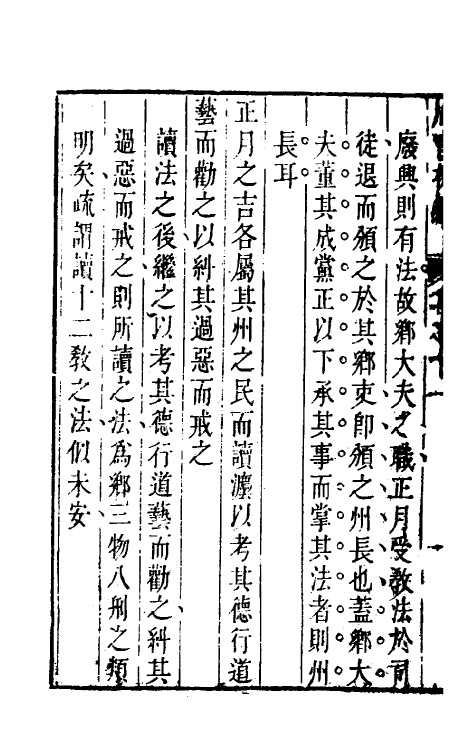 廢興則有法故鄉大夫之職正月受敎法於司
徒退而頒之於其鄉吏卽頒之州長也蓋鄉大
夫董其成黨正以下承其事而掌其法者則州
長耳
正月之吉各屬其州之民而讀灋以考其德行道
藝而勸之以糾其過惡而戒之
讀法之後繼之以考其德行道藝而勸之糾其
過惡而戒之則所讀之法爲鄉三物八刑之類
明矣疏謂讀十二敎之法似未安